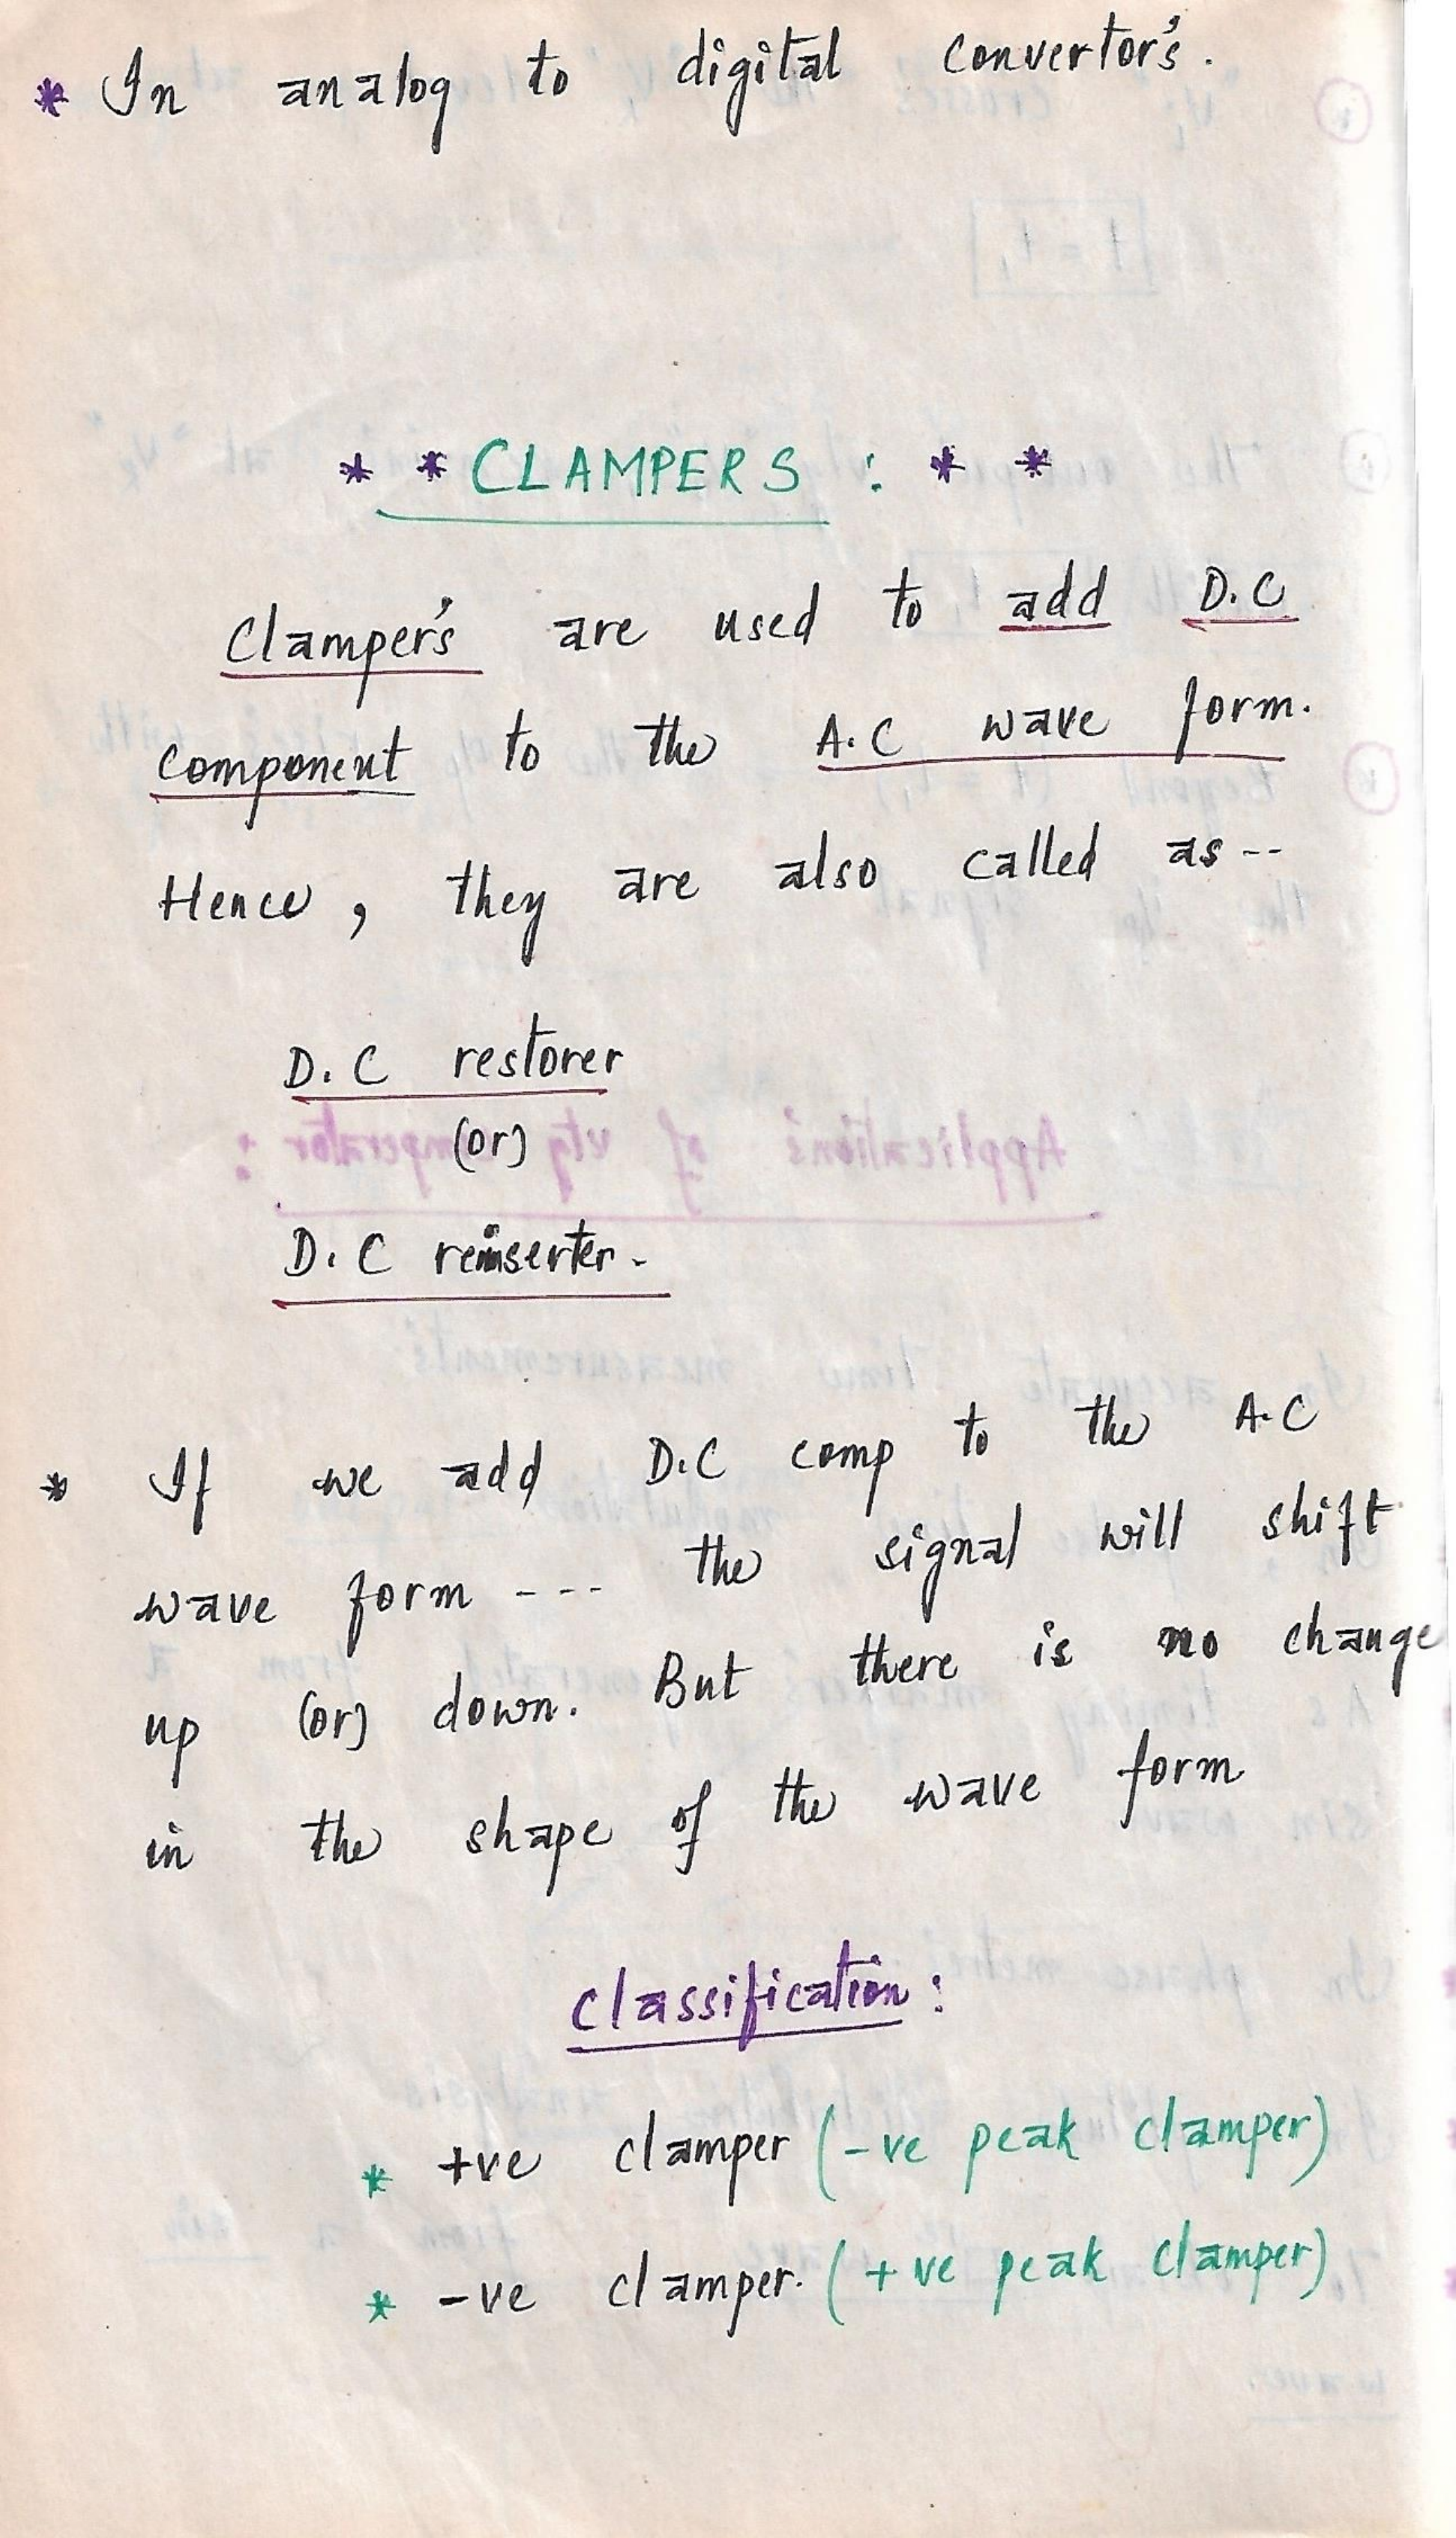 * In analog to digital convertor's.
* * CLAMPERS : * *
Clamper's are used to add D.C
component to the A.C wave form.
Hence, they are also called as --
D.C restorer
(or)
D.C reinserter.
* If we add D.C comp to the A.C
wave form --- the signal will shift
up (or) down. But there is no change
in the shape of the wave form
classification:
* +ve clamper (-ve peak clamper)
* -ve clamper. (+ve peak clamper)